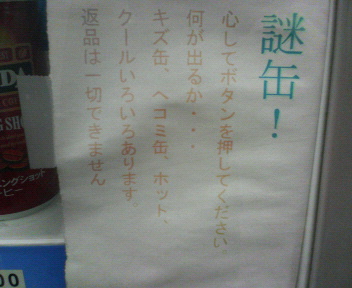 謎缶！
心してボタンを押してください。
何が出るか・・・
キズ缶、ヘコミ缶、ホット、
クールいろいろあります。
返品は一切できません
ングショット
ーヒー
00